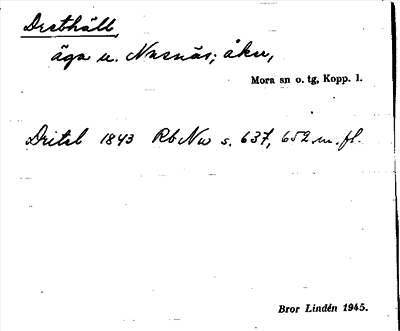 Drethäll,
äga u. Nusnäs; åker,
Mora sn o. tg, Kopp. l.
Dritsl 1843 Rb Nw s. 637, 652 m. fl.
Bror Lindén 1945.